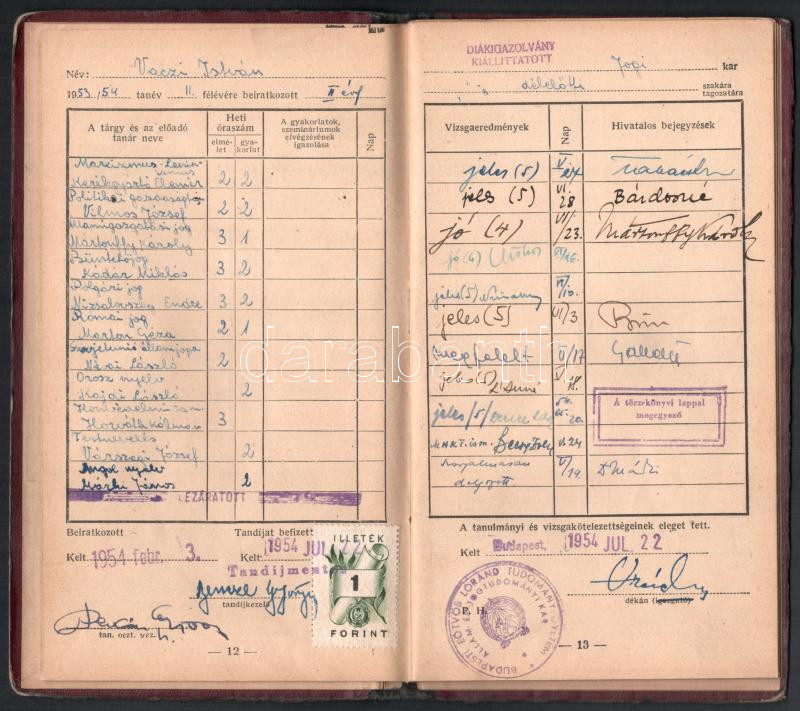 Név: Vaczi István
1953/54 tanév II. félévére beiratkozott II évf
A tárgy és az előadó
tanár neve
Heti
óraszám
elmé-
let
gya-
korlat
A gyakorlatok,
szemináriumok
elvégzésének
igazolása
Nap
Marxizmus-Lenin-
izmus
Kerékgyártó Elemér 2 2
Politikai gazdaságtan
Vilmos József 2 2
Államigazgatási jog
Martonffy Károly 3 1
Büntetőjog
Kádár Miklós 3 2
Polgári jog
Nizsalovszky Endre 3 2
Római jog
Marton Géza 2 1
Szovjetunió államjoga
Névai László 2
Orosz nyelv
Hajdi László 2
Honvédelmi ism.
Horváth Kálmán 3
Testnevelés
Várszegi József 2
Angol nyelv
Márki János 2
LEZÁRATOTT
Beiratkozott
Kelt 1954 febr. 3.
Tandíjat befizet
Kelt: 1954 JUL. 22
Tandíjmentes
tandíjkezelő
tan. oszt. vez.
ILLETÉK
1
FORINT
— 12 —
DIÁKIGAZOLVÁNY
KIÁLLITTATOTT
Jogi kar
délelőtti szakára
tagozatára
Vizsgaeredmények
Nap
Hivatalos bejegyzések
jeles (5) V/24
jeles (5) VI. 28 Bárdosné
jó (4) VII/23. Mártonffy Károly
jó (4) VI/16.
jeles (5) VI/10.
jeles (5) VI/3
megfelelt V/17
jeles (5)
jeles /5/ 20.
MHKT. ism. V. 24
Szorgalmasan
dolgozott V/19.
A törzskönyvi lappal
megegyező
A tanulmányi és vizsgakötelezettségeinek eleget tett.
Kelt Budapest, 1954 JUL. 22
P. H.
BUDAPESTI EÖTVÖS LORÁND TUDOMÁNYEGYETEM
ÁLLAM ÉS JOGTUDOMÁNYI KAR
dékán (igazgató)
— 13 —
darabanth